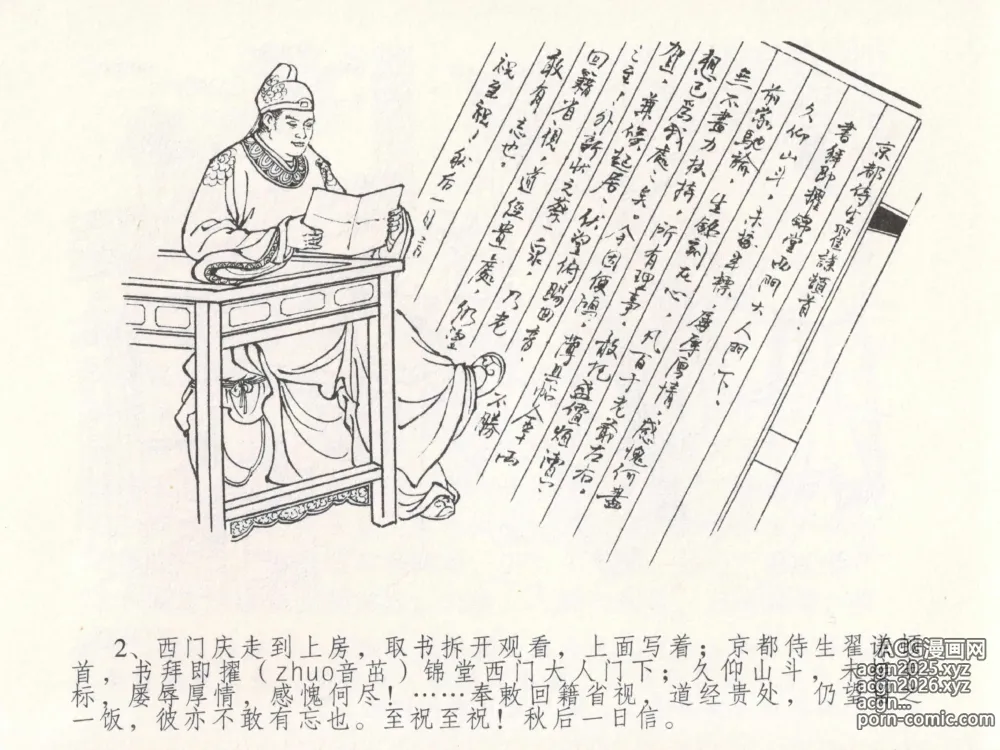 京都侍生翟謙頓首，
書拜即擢錦堂西門大人門下，
久仰山斗，未接丰標，屢辱厚情，感愧何盡
前蒙馳諭，生銘刻在心，凡百于老爺左右，
無不盡力扶持，所有理事，敢托盛價煩瀆，
想已爲我處之矣。今因便鴻，薄具帖金
賀，兼候起居，伏望俯賜回音，不勝
之至！外新狀元蔡一泉，乃老
回籍省視，道經貴處，仍望
敢有忘也。
祝至祝！秋后一日信
2、西门庆走到上房，取书拆开观看，上面写着；京都侍生翟谦顿
首，书拜即擢（zhuo音茁）锦堂西门大人门下；久仰山斗，未
标，屡辱厚情，感愧何尽！……奉敕回籍省视，道经贵处，仍望之
一饭，彼亦不敢有忘也。至祝至祝！秋后一日信。
ACG漫画网
acgn2025.xyz
acgn2026.xyz
acgn...
porn-comic.com